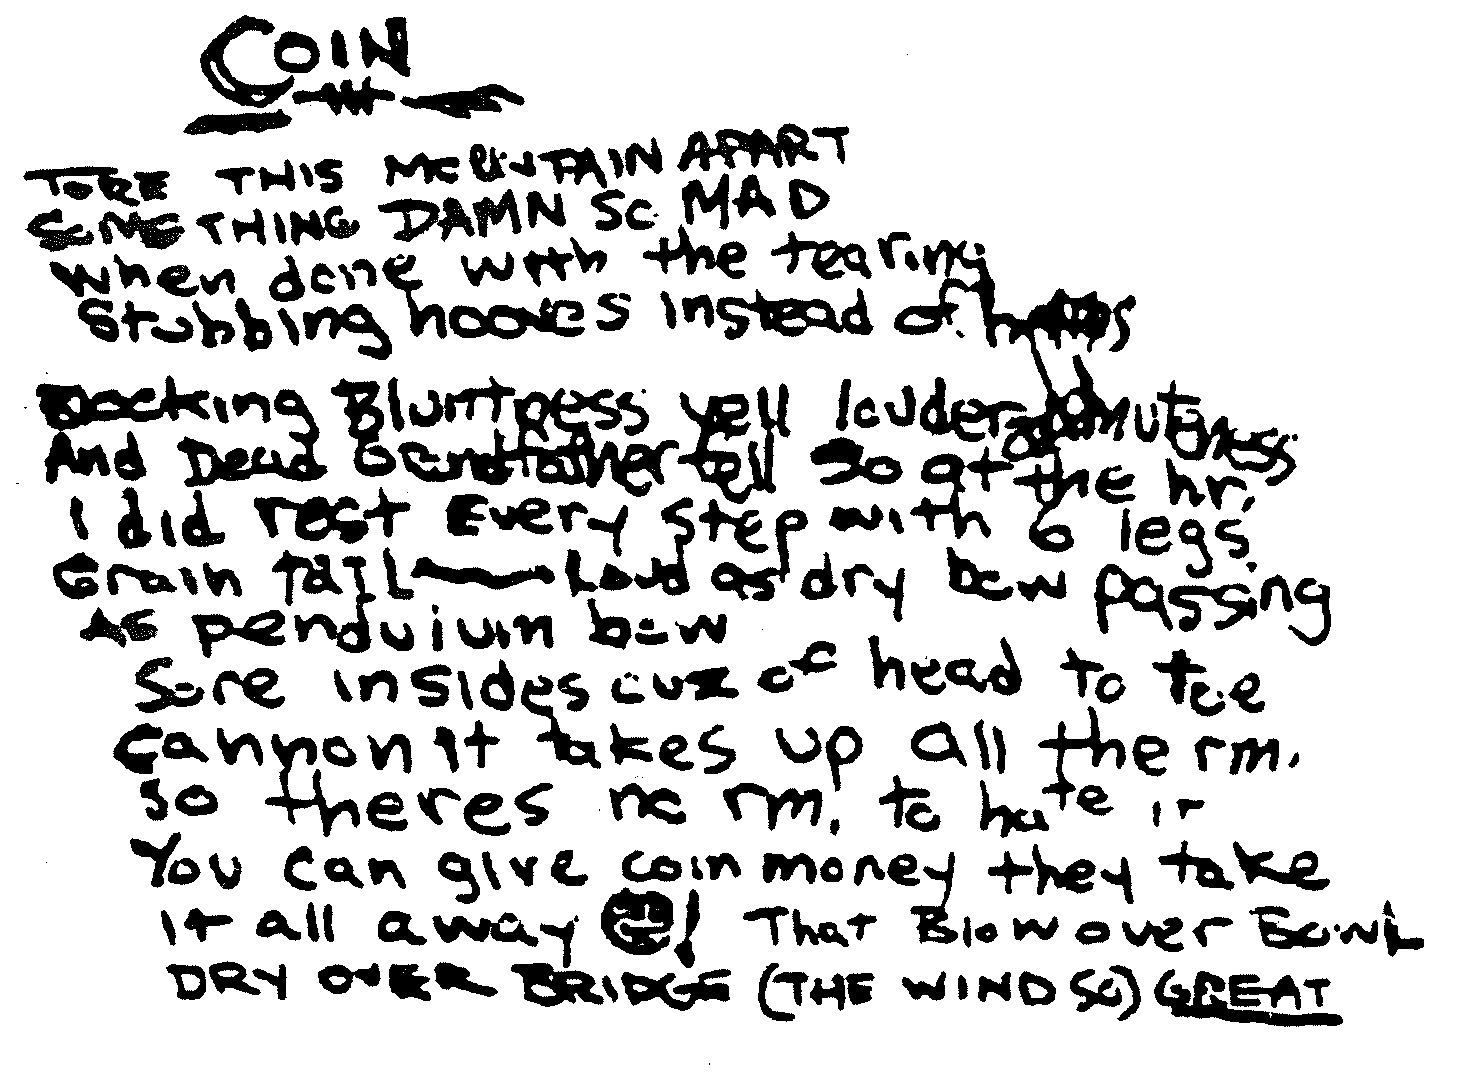 COIN
TORE THIS MOUNTAIN APART
SOMETHING DAMN SO MAD
When done with the tearing
Stubbing hooves instead of
Docking Bluntness yell louder muteness
And Dead Grandfather fell so at the hr,
I did rest Every step with 6 legs,
Grain TAIL Loud as dry bow passing
AS pendulum bow
Sore insides out of head to toe
Cannon it takes up all the rm.
So theres no rm. to hate it
You can give coin money they take
it all away ! That Blow over Bowl
DRY OVER BRIDGE (THE WIND SO) GREAT